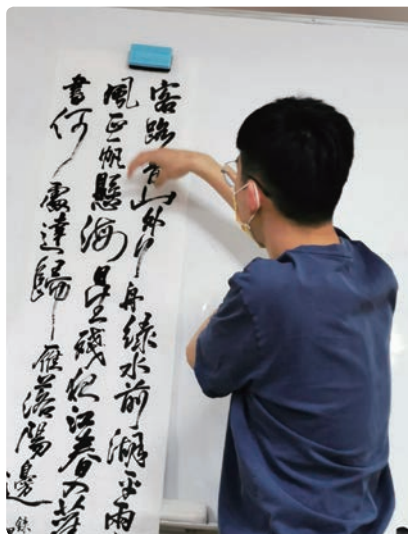 客路青山外行舟綠水前潮平兩
風正一帆懸海日生殘夜江春入舊
書何處達歸雁落陽邊